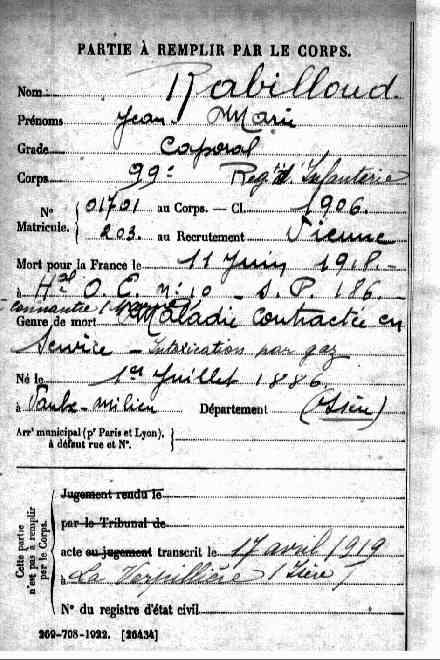 PARTIE À REMPLIR PAR LE CORPS.
Nom Rabilloud.
Prénoms Jean Marie
Grade Caporal
Corps 99e Regt d'Infanterie
N° Matricule. { 01701 au Corps. — Cl. 1906.
203. au Recrutement Vienne
Mort pour la France le 11 Juin 1918 -
à Hal O. E. n° 10 - S. P. 186 -
connantre (Marne)
Genre de mort Maladie contractée en
Service - Intoxication par gaz
Né le 1er Juillet 1886.
à Département (Isère)
Arrt municipal (pr Paris et Lyon), à défaut rue et N°. }
Cette partie n'est pas à remplir par le Corps.
Jugement rendu le
par le Tribunal de
acte ou jugement transcrit le 17 avril 1919
à La Verpillière (Isère)
N° du registre d'état civil
269-708-1922. [26434]